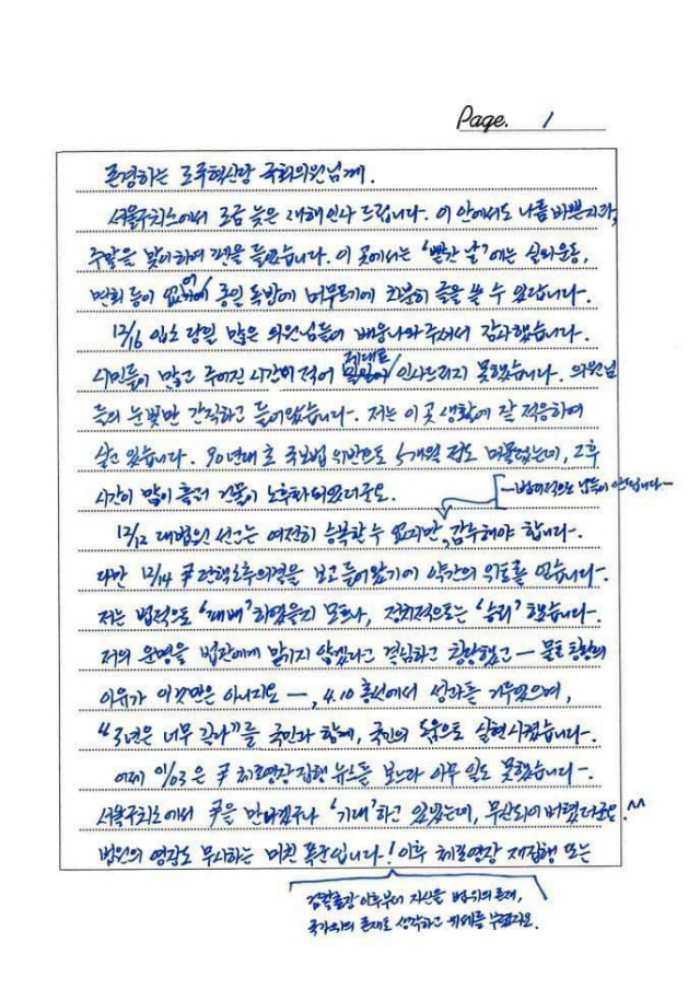 Page. 1
존경하는 조국혁신당 국회의원님께.
서울구치소에서 조금 늦은 새해인사 드립니다. 이 안에서도 나름 바쁜지라,
주말을 맞이하여 펜을 들었습니다. 이 곳에서는 '빨간 날'에는 실외운동,
면회 등이 없어 종일 독방에 머무르기에 차분히 글을 쓸 수 있답니다.
12/16 입소 당일 많은 의원님들이 배웅나와주셔서 감사했습니다.
시민들이 많고 주어진 시간이 적어 제대로 인사드리지 못했습니다. 의원님
들의 눈빛만 간직하고 들어왔습니다. 저는 이곳 생활에 잘 적응하여
살고 있습니다. 90년대 초 국보법 위반으로 5개월 정도 머물렀는데, 그 후
시간이 많이 흘러 건물이 노후화되었더군요.
—법리적으로 납득이 안됩니다—
12/12 대법원 선고는 여전히 승복할 수 없지만, 감수해야 합니다.
다만 12/14 尹 탄핵소추의결을 보고 들어왔기에 약간의 위로를 얻습니다.
저는 법적으로 '패배'하였을지 모르나, 정치적으로는 '승리'했습니다.
저의 운명을 법관에게 맡기지 않겠다고 결심하고 창당했고 — 물론 창당의
이유가 이것만은 아니지요 —, 4.10 총선에서 성과를 거두었으며,
"3년은 너무 길다"를 국민과 함께, 국민의 도움으로 실현시켰습니다.
어제 01/03은 尹 체포영장집행 뉴스를 보느라 아무 일도 못했습니다.
서울구치소에서 尹을 만나겠구나 '기대'하고 있었는데, 무산되어 버렸더군요. ^^
법원의 영장도 무시하는 미친 폭군입니다! 이후 체포영장 재집행 또는
검찰총장 이후부터 자신을 법 위의 존재,
국가 위의 존재로 생각하고 위세를 부렸지요.